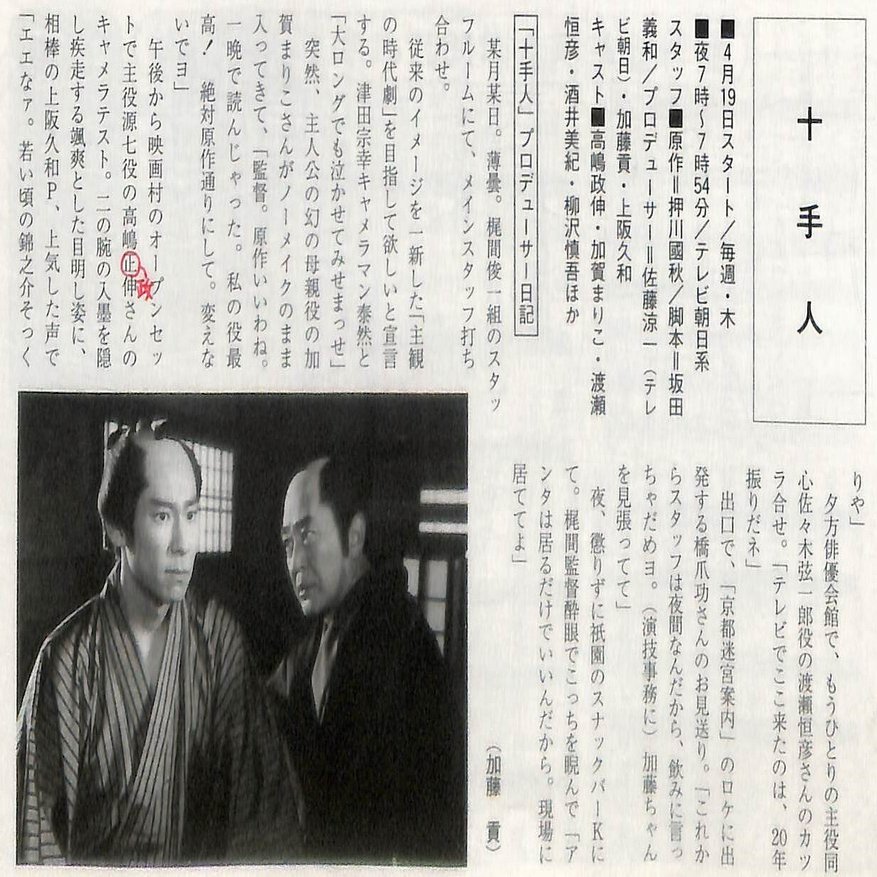 十手人
■4月19日スタート/毎週・木
■夜7時~7時54分/テレビ朝日系
スタッフ■原作=押川國秋/脚本=坂田
義和/プロデューサー=佐藤涼一(テレ
ビ朝日)・加藤貢・上阪久和
キャスト■高嶋政伸・加賀まりこ・渡瀬
恒彦・酒井美紀・柳沢慎吾ほか
「十手人」プロデューサー日記
某月某日。薄曇。梶間俊一組のスタッ
フルームにて、メインスタッフ打ち
合わせ。
従来のイメージを一新した「主観
の時代劇」を目指して欲しいと宣言
する。津田宗幸キャメラマン泰然と
「大ロングでも泣かせてみせまっせ」
突然、主人公の幻の母親役の加
賀まりこさんがノーメイクのまま
入ってきて、「監督。原作いいわね。
一晩で読んじゃった。私の役最
高! 絶対原作通りにして。変えな
いでヨ」
午後から映画村のオープンセッ
トで主役源七役の高嶋正伸さんの
政
キャメラテスト。二の腕の入墨を隠
し疾走する颯爽とした目明し姿に、
相棒の上阪久和P、上気した声で
「エエなァ。若い頃の錦之介そっく
りや」
夕方俳優会館で、もうひとりの主役同
心佐々木弦一郎役の渡瀬恒彦さんのカツ
ラ合せ。「テレビでここ来たのは、20年
振りだネ」
出口で、「京都迷宮案内」のロケに出
発する橋爪功さんのお見送り。「これか
らスタッフは夜間なんだから、飲みに言っ
ちゃだめヨ。(演技事務に)加藤ちゃん
を見張ってて」
夜、懲りずに祇園のスナックバーKに
て。梶間監督酔眼でこっちを睨んで「ア
ンタは居るだけでいいんだから。現場に
居ててよ」
(加藤 貢)